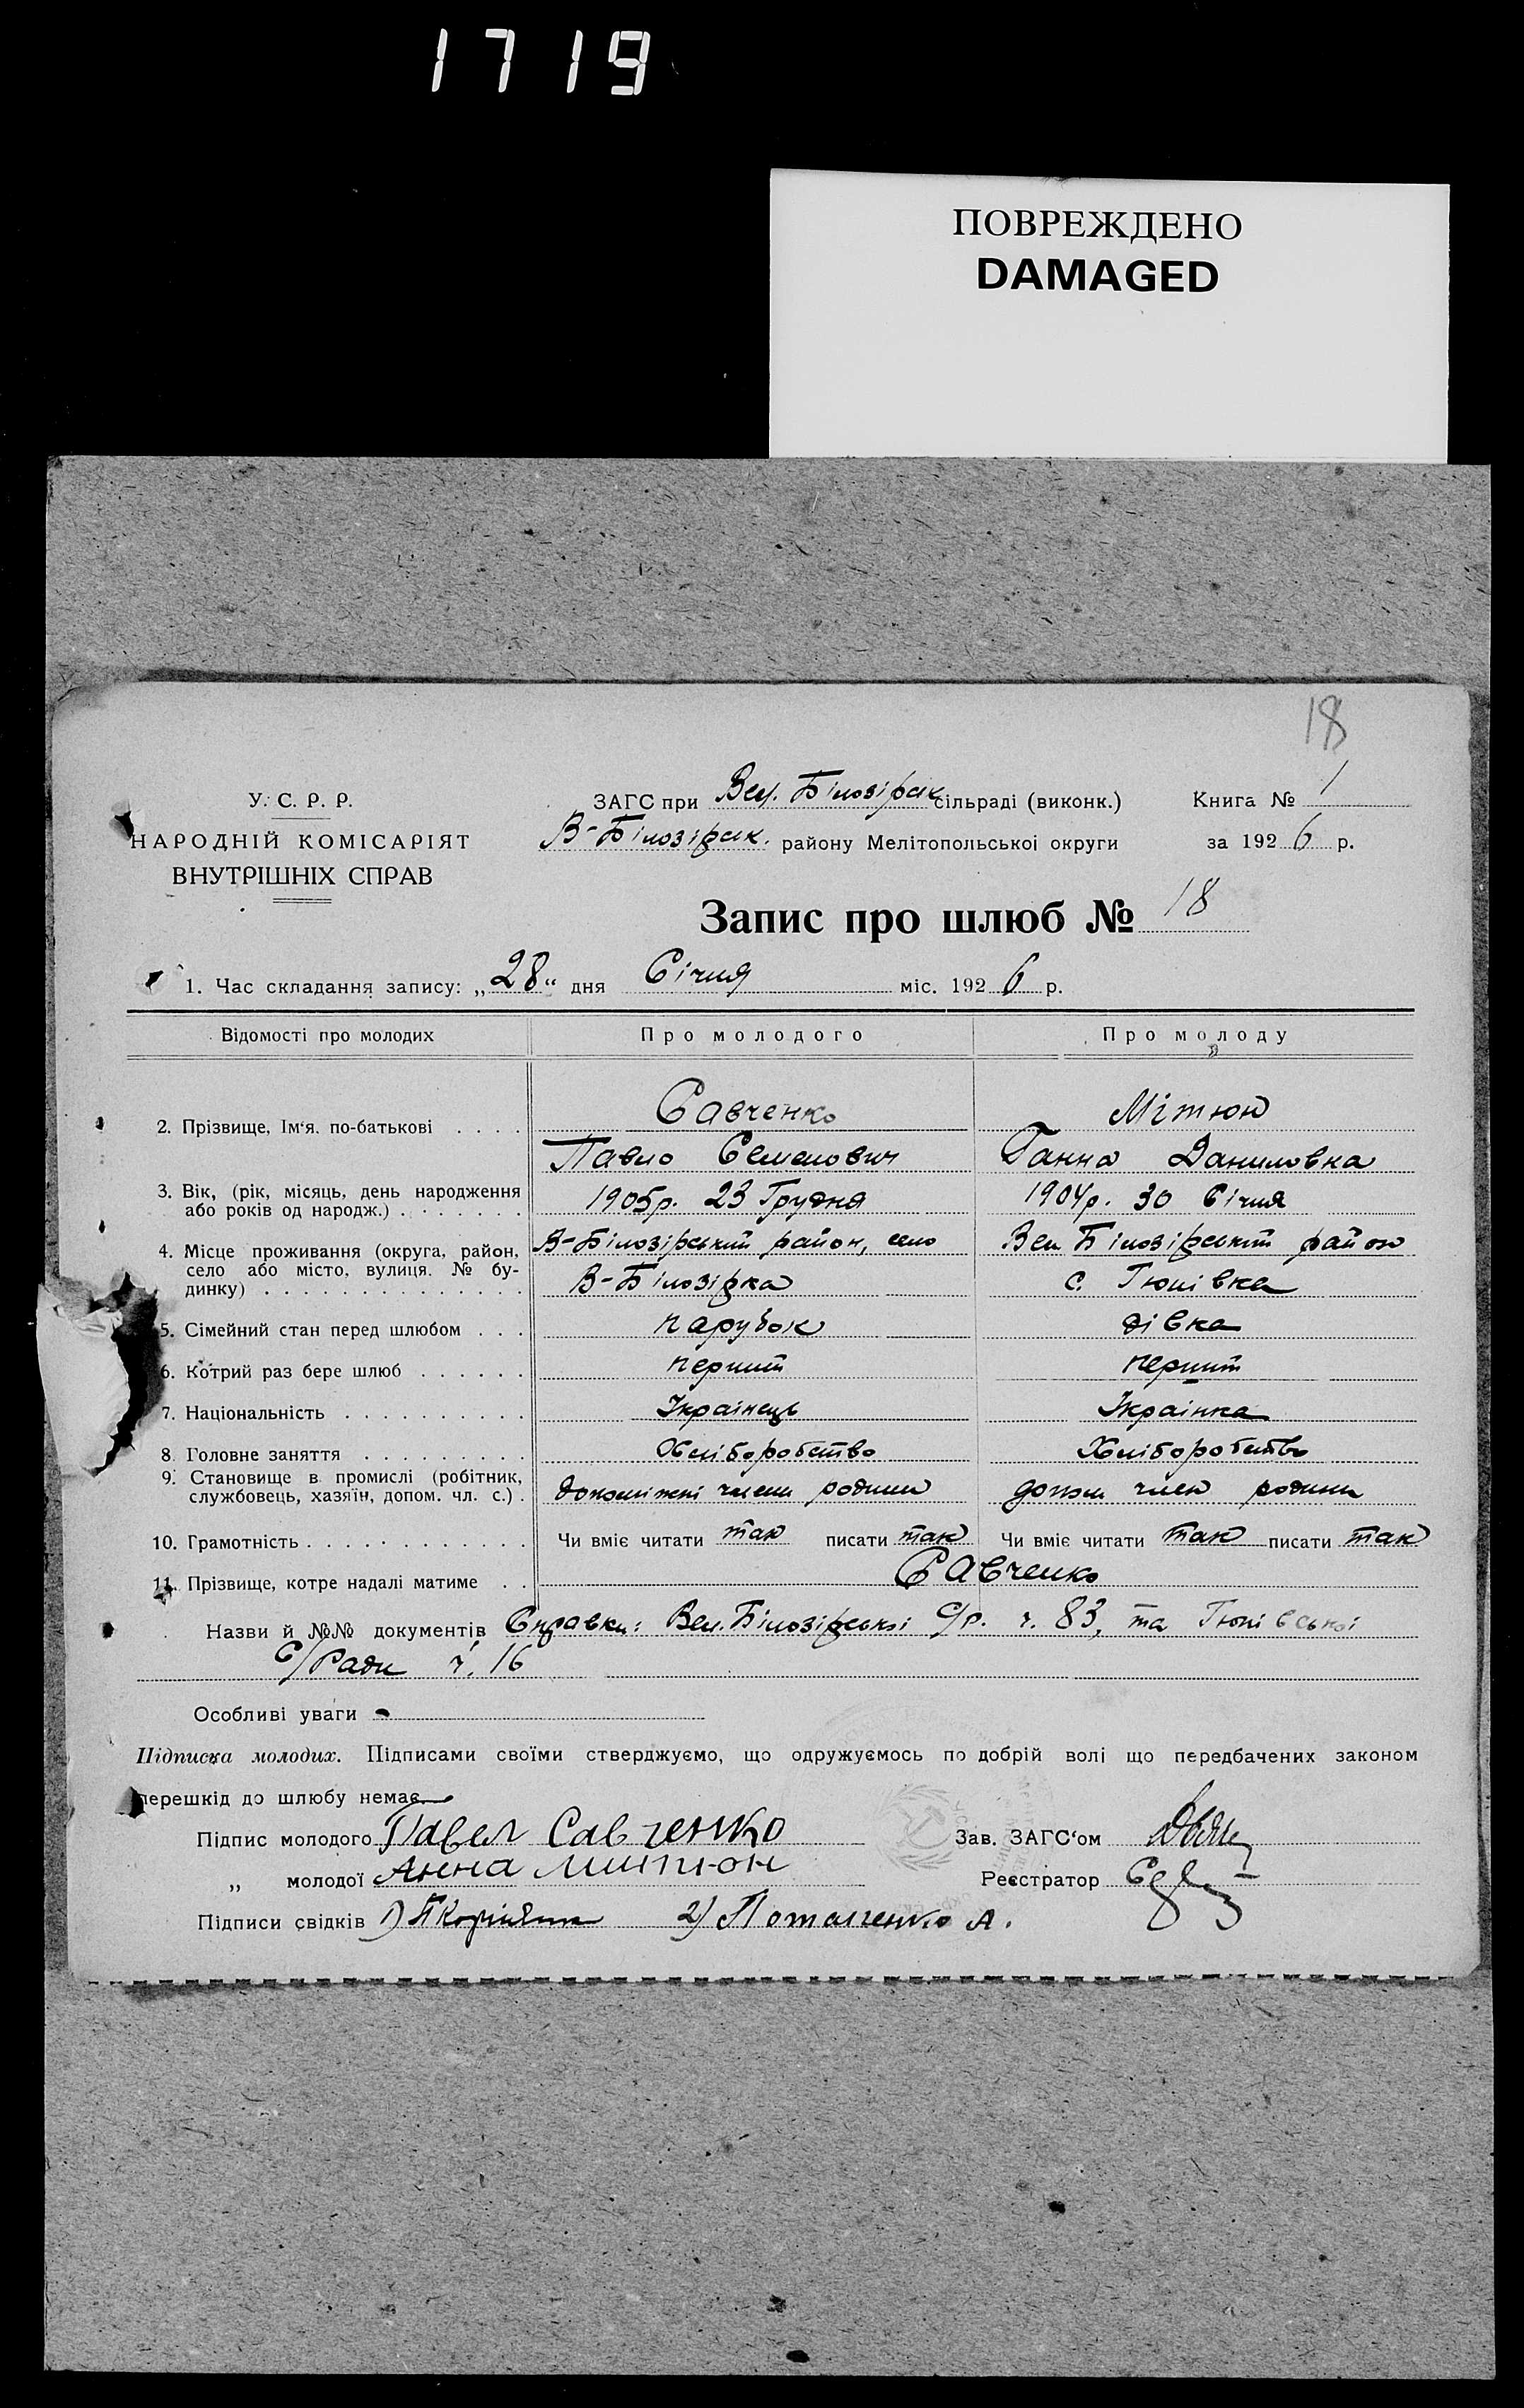 1719
ПОВРЕЖДЕНО
DAMAGED
18
У. С. Р. Р.
НАРОДНІЙ КОМІСАРІЯТ
ВНУТРІШНІХ СПРАВ
ЗАГС при Вел. Білозірськ сільраді (виконк.)
В-Білозірськ. району Мелітопольської округи
Книга № 1
за 1926 р.
Запис про шлюб № 18
1. Час складання запису: „28“ дня Січня міс. 1926 р.
Відомості про молодих Про молодого Про молоду
2. Прізвище, Ім‘я. по-батькові . . . . Савченко Мітюн
Павло Семенович Ганна Даниловна
3. Вік, (рік, місяць, день народження або років од народж.) . . . . . . . 1905р. 23 Грудня 1904р. 30 Січня
4. Місце проживання (округа, район, В-Білозірський район, село Вел Білозірський район
село або місто, вулиця. № будинку) . . . . . . . . . . . . . . В-Білозірка с. Гюнівка
5. Сімейний стан перед шлюбом . . . парубок дівка
6. Котрий раз бере шлюб . . . . . . перший перший
7. Національність . . . . . . . . . . Українець Українка
8 Головне заняття . . . . . . . . . Хліборобство Хліборобство
9. Становище в промислі (робітник, службовець, хазяїн, допом. чл. с.) . допоміжні члени родини допом член родини
10. Грамотність . . . . . . . . . . . . Чи вміє читати так писати так Чи вміє читати так писати так
11. Прізвище, котре надалі матиме . . Савченко
Назви й №№ документів Справки: Вел. Білозірської С/р. ч. 83, та Гюнівської
С/Ради ч. 16
Особливі уваги -
Підписка молодих. Підписами своїми стверджуємо, що одружуємось по добрій волі що передбачених законом
перешкід до шлюбу немає.
Підпис молодого Павел Савченко Зав. ЗАГС‘ом
„ молодої Анна Митюн Реєстратор
Підписи свідків 1) 2) Потапченко А.